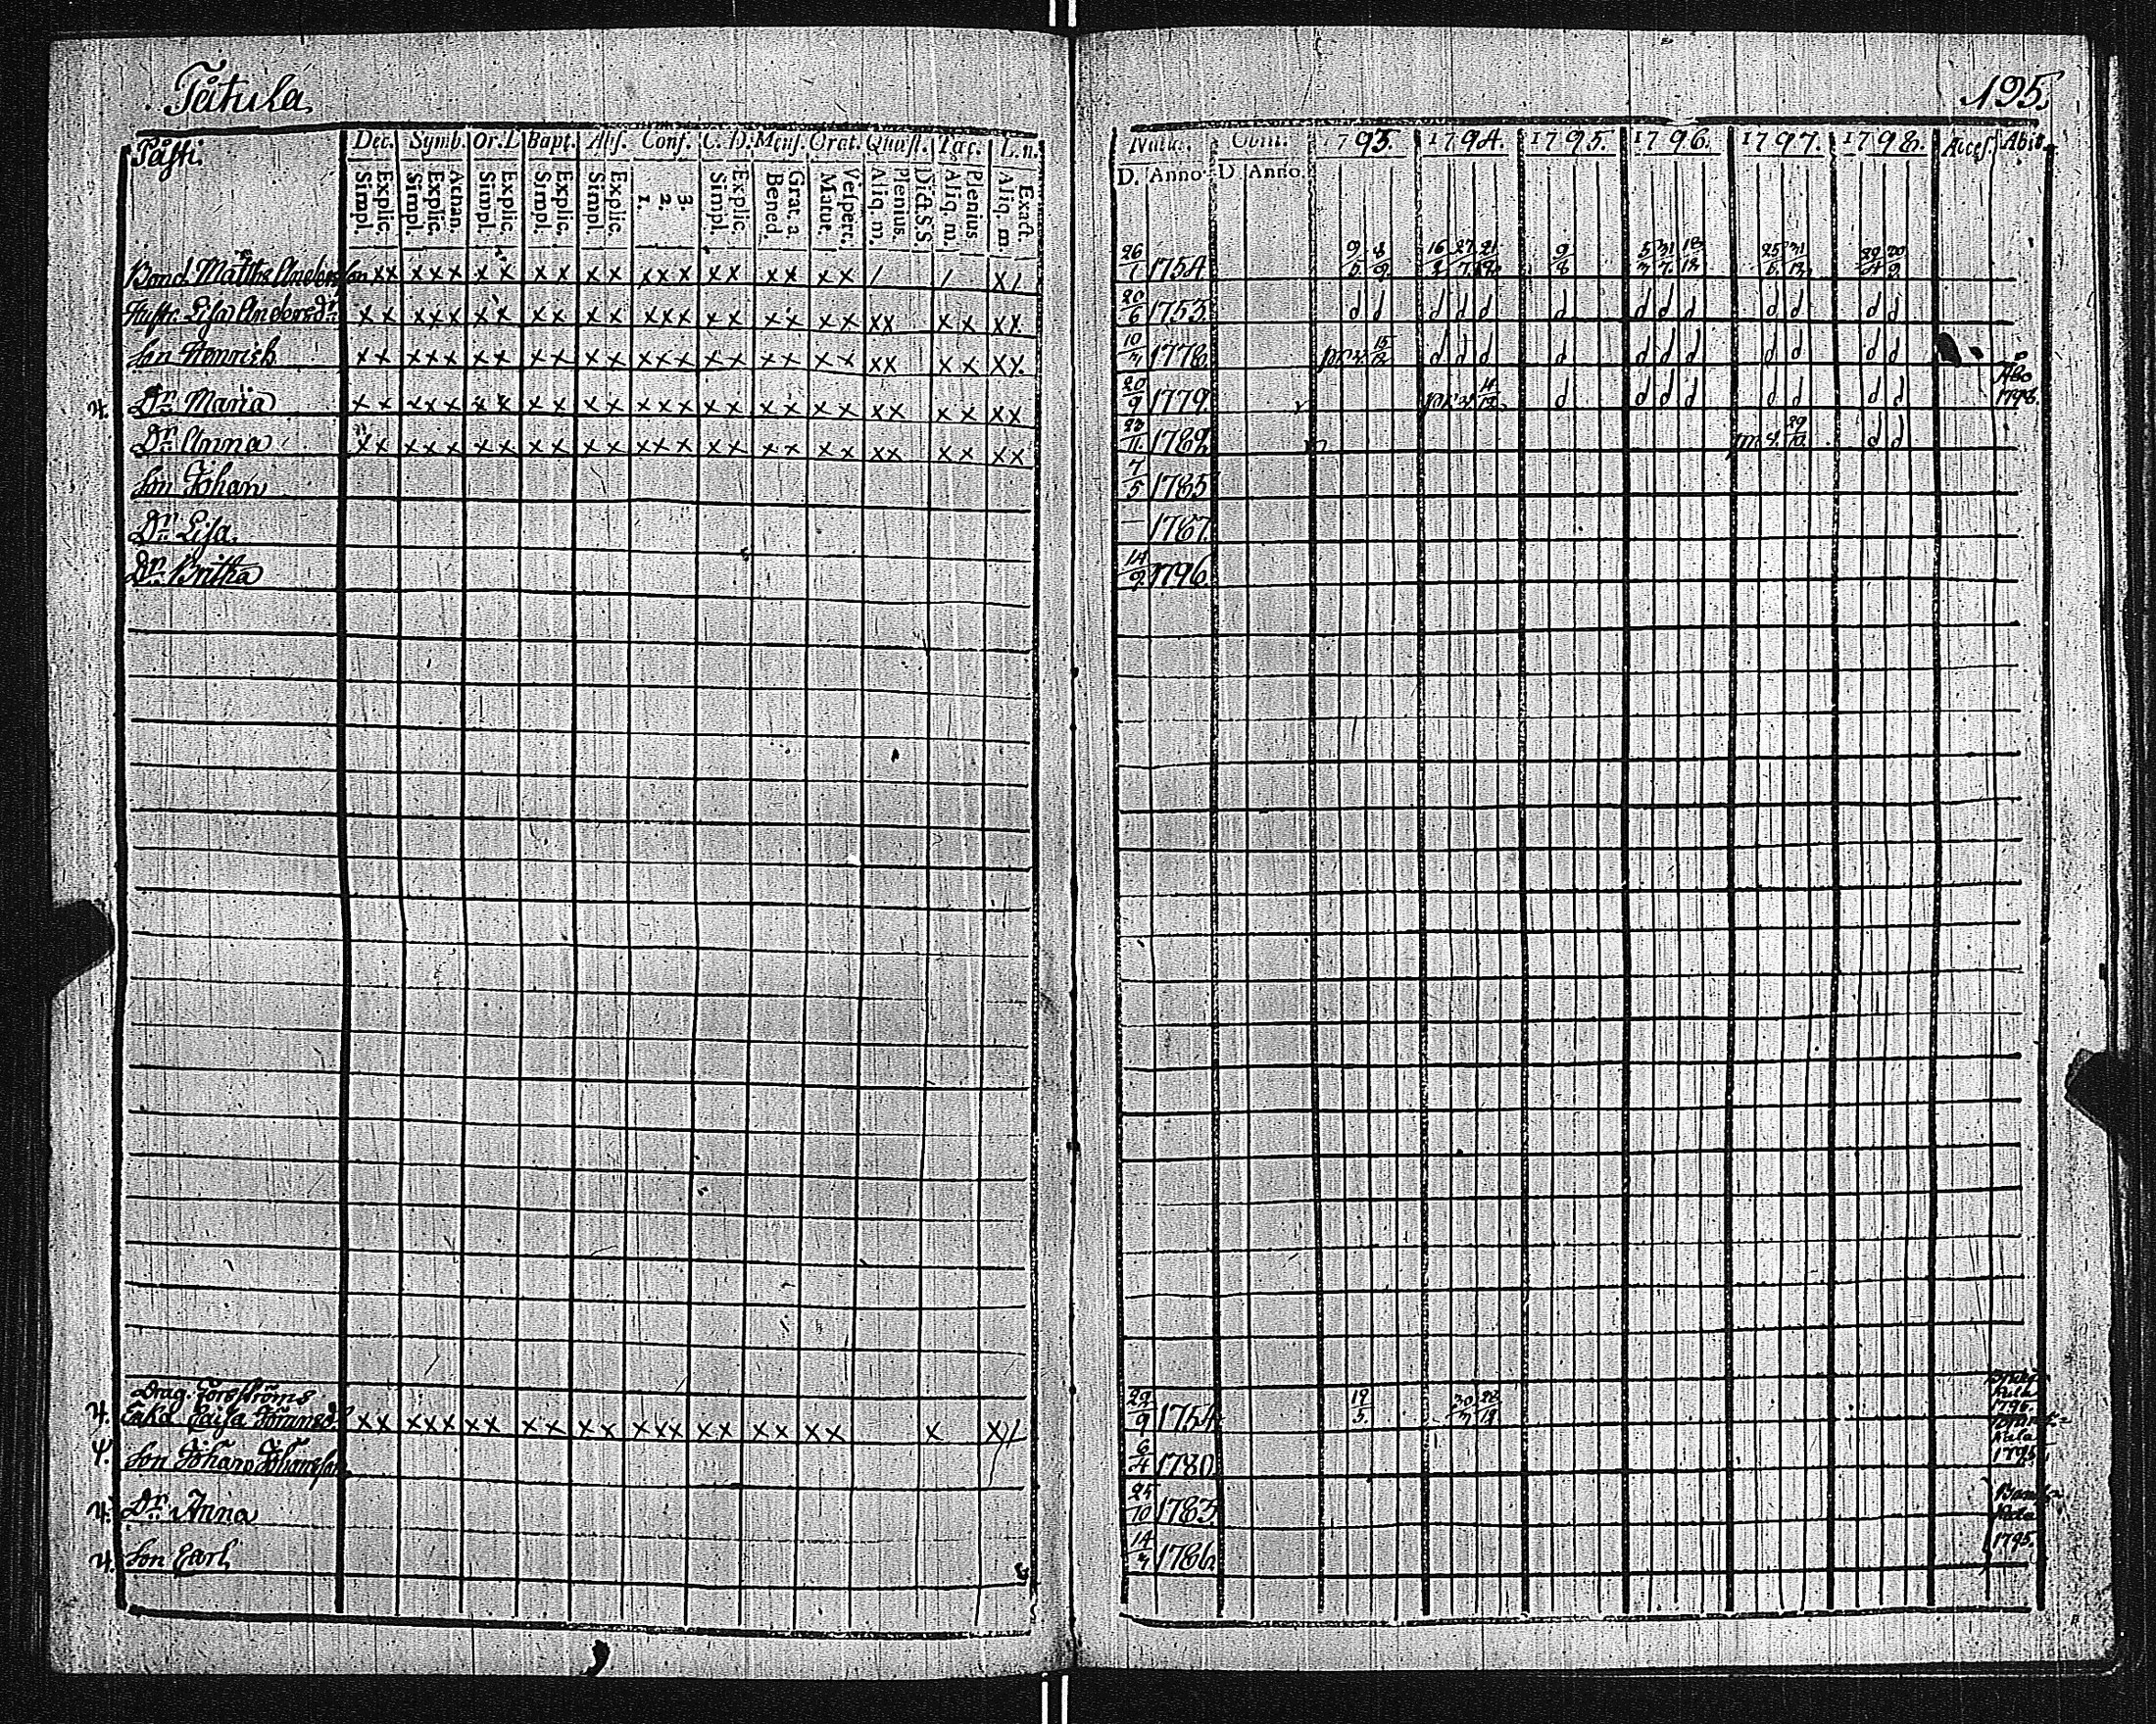 Tåtula
195.
Påssi.
Dec. Symb. Or.D Bapt. Abs. Conf. C. D. Mens. Orat. Quæst. Tac. L.n.
Simpl. Explic. Simpl. Explic. Athan. Simpl. Explic. Simpl. Explic. Simpl. Explic. 1. 2. 3. Simpl. Explic. Bened. Grat. a Matut. Vespert. Aliq. m. Plenius. Dict.S.S. Aliq. m. Plenius Aliq. m. Exact.
Natu. Com. 1793. 1794. 1795. 1796. 1797. 1798. Acces. Abit.
D. Anno D Anno
Bond. Matths Andersson xx xxx xx xx xx xxx xx xx xx / / x/ 26/1 1754 9/5 16/2 27/7 9/8 5/3 31/7 18/12 25/5 31/12 29/4
Hustr. Lisa Andersdr xx xxx xx xx xx xxx xx xx xx xx xx xx 20/6 1753 d d d d d d d d d d d d d
Son Henrich xx xxx xx xx xx xxx xx xx xx xx xx xx 10/3 1778 15/12 d d d d d d d d d d d
Dr. Maria xx xxx xx xx xx xxx xx xx xx xx xx xx 20/9 1779 d d d d d d d d Åbo 1798.
Dr. Anna xx xxx xx xx xx xxx xx xx xx xx xx xx 23/11 1782 29/12 d d
Son Johan 7/5 1785
Dr. Lisa — 1787.
Dr. Britha 14/2 1796
Drag. Forsströms
Enka Caisa Göransdr xx xxx xx xx xx xxx xx xx xx x x/ 29/9 1754 19/5 30/3 1795.
Son Johan Johansson 6/4 1780. 1795
Dr. Anna 25/10 1783
Son Carl 14/3 1786. 1795.